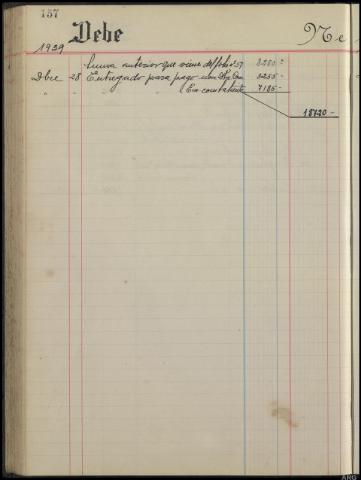 157
Debe
Ne
1929
Suma anterior que viene del folio 57 8280 =
Dbre 28 Entregado para pago 3255 -
" " " " " Ex-combatiente 7185 -
18720 -
ARG